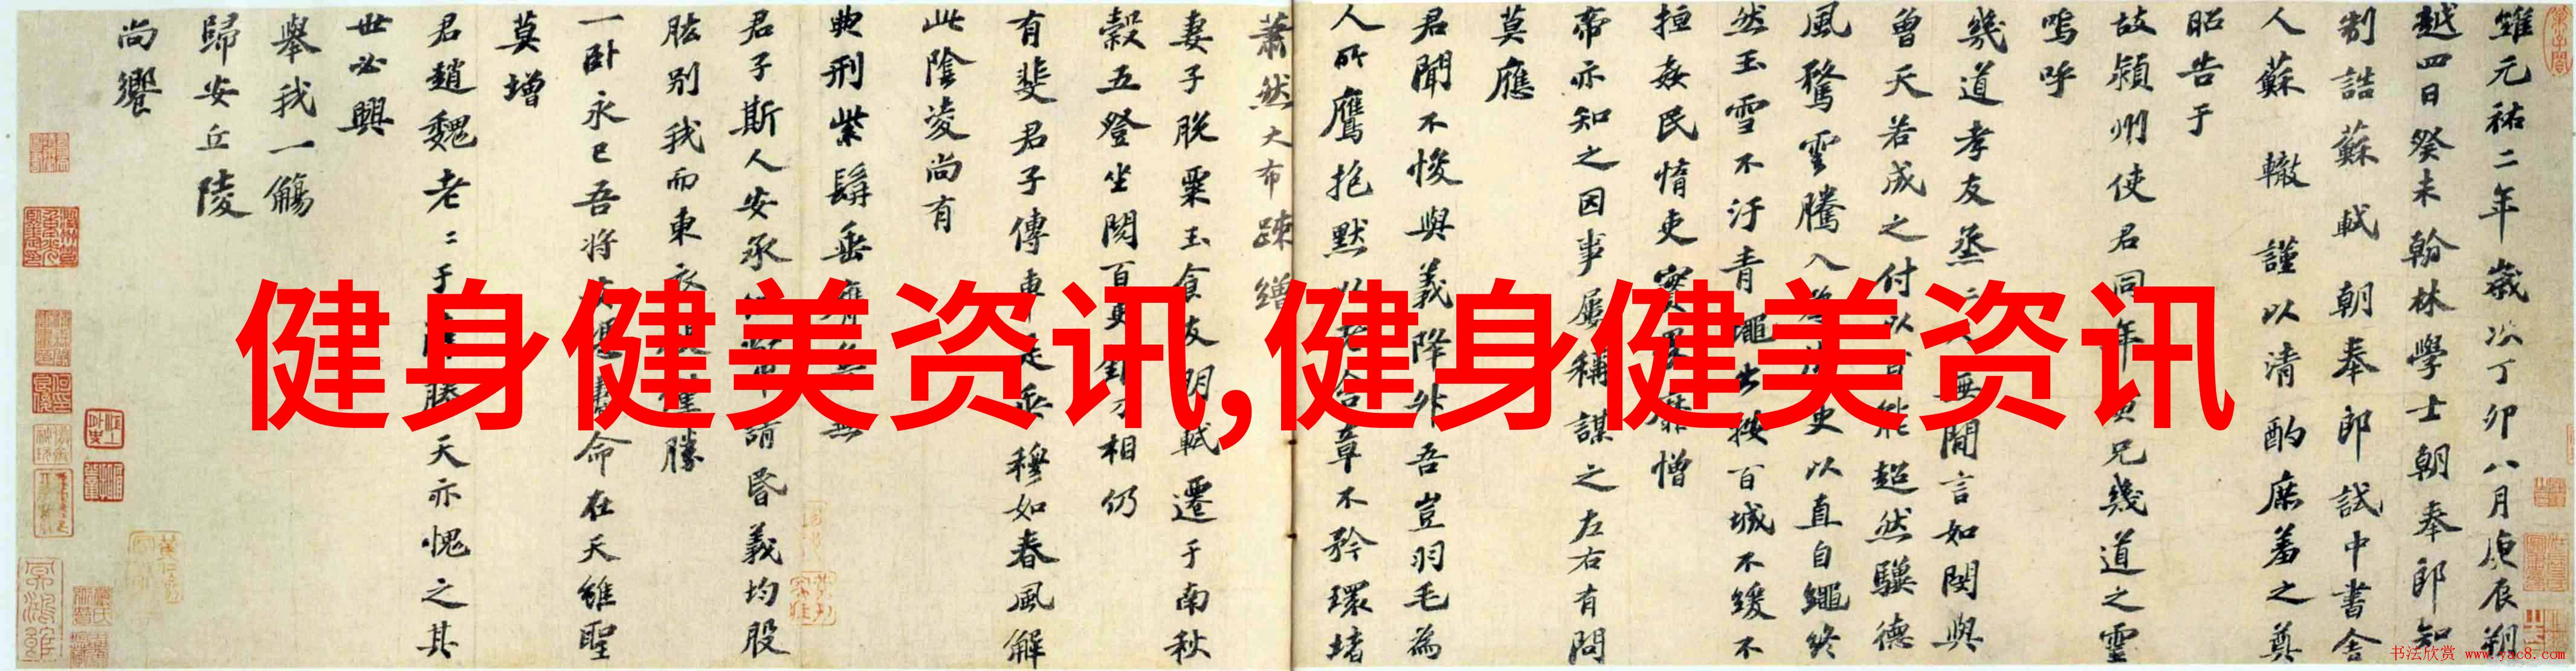 維元祐二年歲次丁卯八月庚辰朔
越四日癸未翰林學士朝奉郎知
制誥蘇軾朝奉郎試中書舍
人蘇轍謹以清酌庶羞之奠
昭告于
故潁州使君同年兄幾道之靈
嗚呼
幾道孝友烝無閒言如閔與
曾天若成之付以百能超然驥德
風騖雲騰入為史以直自繩終
然玉雪不汙青蠅出按百城不緩不
拒姦民惰吏實畏靡憎
帝亦知之因事屢稱謀之左右有問
莫應
君聞不悛與義降升吾豈羽毛為
人所鷹抱默以老章不矜環堵
蕭然大布疎繒
妻子脫粟玉食友朋軾遷于南秋
穀五登坐閱百吏刀相仍
有斐君子傳車是乘穆如春風解
此陰凌尚有
典刑紫髯垂膺無
君子斯人安承請昏義均股
肱別我而東衣僅勝
一卧永已吾將安命在天雖聖
莫增
君趙魏老〻于滕天亦愧之其
世必興
舉我一觴
歸安丘陵
尚饗
健身健美资讯,健身健美资讯
书法欣赏 www.yac8.com